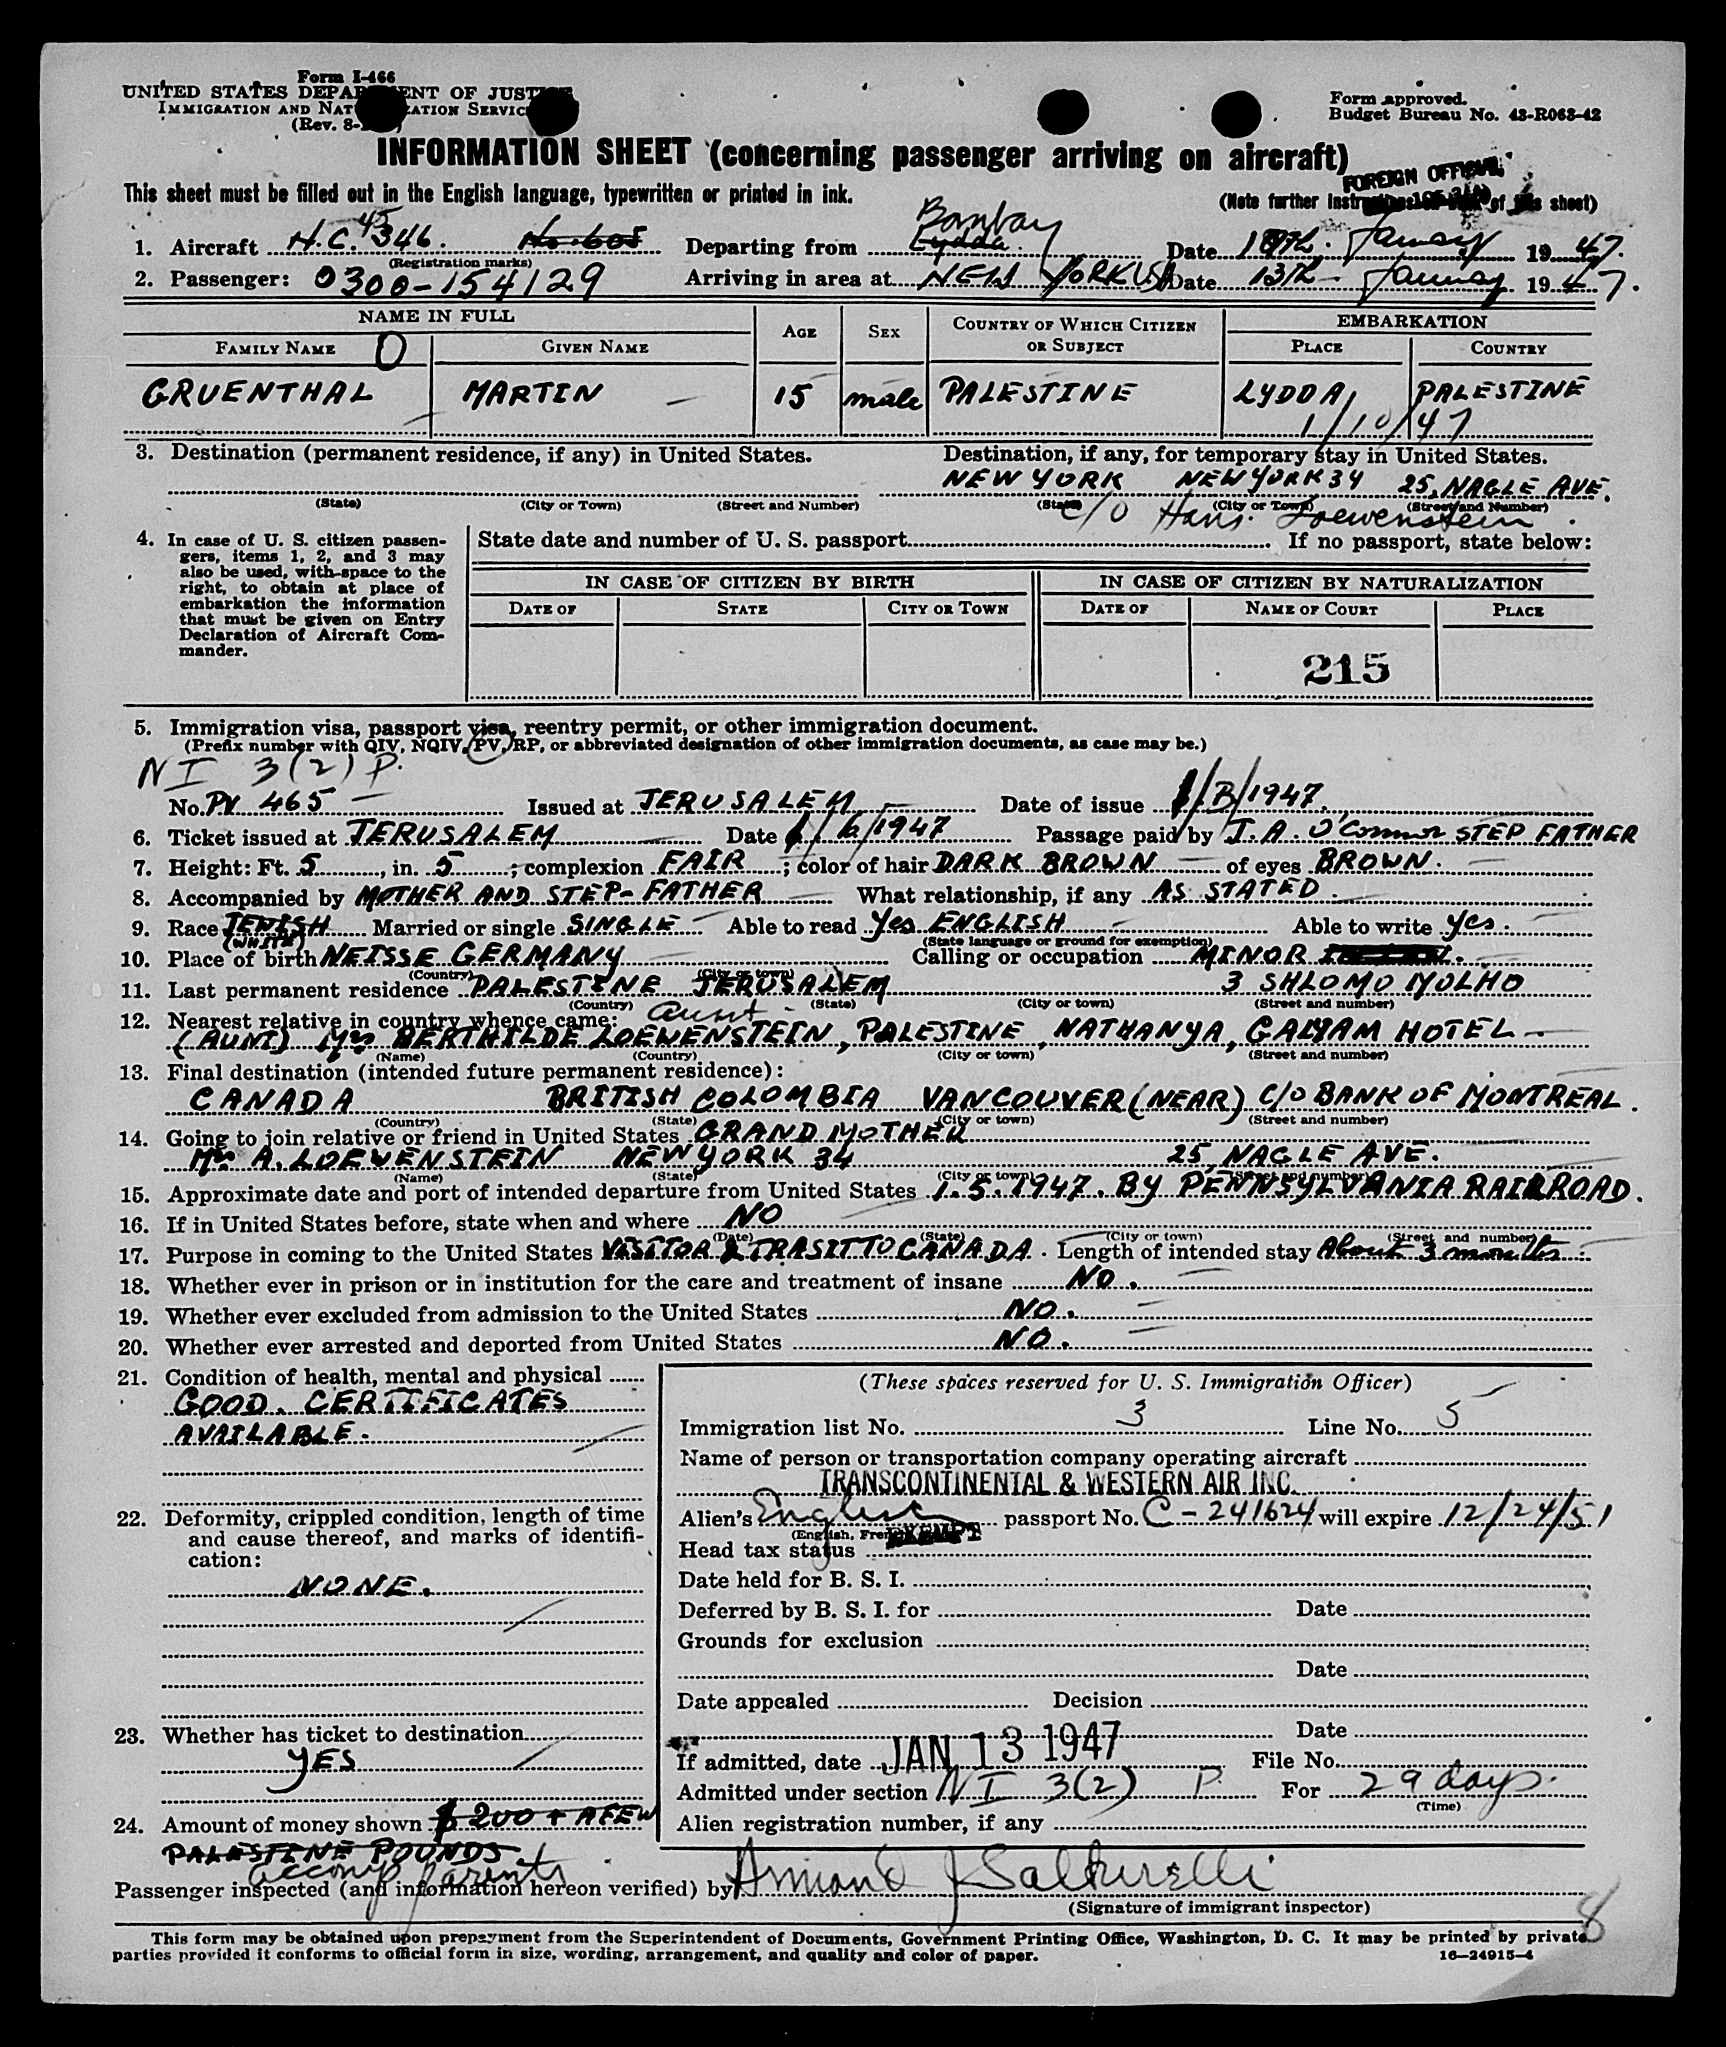 Form I-466
UNITED STATES DEPARTMENT OF JUSTICE
IMMIGRATION AND NATURALIZATION SERVICE
(Rev. 8-
Form approved.
Budget Bureau No. 43-R063-42
INFORMATION SHEET (concerning passenger arriving on aircraft)
FOREIGN OFFICIAL
This sheet must be filled out in the English language, typewritten or printed in ink.
(Note further instructions of this sheet)
1. Aircraft N.C. 45346. No. 605 Departing from Lydda Bombay Date January 1947.
(Registration marks)
2. Passenger: 0300-154129 Arriving in area at NEW YORK USA Date 13th January 1947.
NAME IN FULL AGE SEX COUNTRY OF WHICH CITIZEN OR SUBJECT EMBARKATION
FAMILY NAME O GIVEN NAME PLACE COUNTRY
GRUENTHAL MARTIN 15 male PALESTINE LYDDA PALESTINE
1/10/47
3. Destination (permanent residence, if any) in United States. Destination, if any, for temporary stay in United States.
NEW YORK NEW YORK 34 25, NAGLE AVE.
(State) (City or Town) (Street and Number) (State) (City or Town) (Street and Number)
c/o Hans. Loewenstein
4. In case of U. S. citizen passengers, items 1, 2, and 3 may also be used, with space to the right, to obtain at place of embarkation the information that must be given on Entry Declaration of Aircraft Commander.
State date and number of U. S. passport If no passport, state below:
IN CASE OF CITIZEN BY BIRTH IN CASE OF CITIZEN BY NATURALIZATION
DATE OF STATE CITY OR TOWN DATE OF NAME OF COURT PLACE
215
5. Immigration visa, passport visa, reentry permit, or other immigration document.
(Prefix number with QIV, NQIV, PV, RP, or abbreviated designation of other immigration documents, as case may be.)
NI 3(2) P.
No. PV 465 Issued at JERUSALEM Date of issue 1947.
6. Ticket issued at JERUSALEM Date 1947 Passage paid by J.A. O'Connor STEP FATHER
7. Height: Ft. 5, in. 5; complexion FAIR; color of hair DARK BROWN of eyes BROWN.
8. Accompanied by MOTHER AND STEP-FATHER What relationship, if any AS STATED
9. Race JEWISH (WHITE) Married or single SINGLE Able to read yes ENGLISH Able to write yes.
(State language or ground for exemption)
10. Place of birth NEISSE GERMANY Calling or occupation MINOR
(Country) (City or town)
11. Last permanent residence PALESTINE JERUSALEM 3 SHLOMO MOLHO
(Country) (State) (City or town) (Street and number)
12. Nearest relative in country whence came: aunt
(AUNT) Mrs BERTHILDE LOEWENSTEIN, PALESTINE, NATHANYA, GALYAM HOTEL
(Name) (Country) (City or town) (Street and number)
13. Final destination (intended future permanent residence):
CANADA BRITISH COLOMBIA VANCOUVER (NEAR) C/O BANK OF MONTREAL.
(Country) (State) (City or town) (Street and number)
14. Going to join relative or friend in United States GRAND MOTHER
Mrs A. LOEWENSTEIN NEW YORK 34 25, NAGLE AVE.
(Name) (State) (City or town) (Street and number)
15. Approximate date and port of intended departure from United States 1.5.1947. BY PENNSYLVANIA RAILROAD.
16. If in United States before, state when and where NO
(Date) (State) (City or town) (Street and number)
17. Purpose in coming to the United States VISITOR & TRASIT TO CANADA. Length of intended stay About 3 months
18. Whether ever in prison or in institution for the care and treatment of insane NO.
19. Whether ever excluded from admission to the United States NO.
20. Whether ever arrested and deported from United States NO.
21. Condition of health, mental and physical
GOOD. CERTIFICATES
AVAILABLE.
22. Deformity, crippled condition, length of time and cause thereof, and marks of identification:
NONE.
23. Whether has ticket to destination
YES
24. Amount of money shown $200 + A FEW
PALESTINE POUNDS.
accomp parents
(These spaces reserved for U. S. Immigration Officer)
Immigration list No. 3 Line No. 5
Name of person or transportation company operating aircraft
TRANSCONTINENTAL & WESTERN AIR INC.
Alien's English passport No. C-241624 will expire 12/24/51
(English, French
Head tax status EXEMPT
Date held for B. S. I.
Deferred by B. S. I. for Date
Grounds for exclusion
Date
Date appealed Decision
Date
If admitted, date JAN 13 1947 File No.
Admitted under section NI 3(2) P. For 29 days.
(Time)
Alien registration number, if any
Passenger inspected (and information hereon verified) by Armand J Salturelli
(Signature of immigrant inspector)
8
This form may be obtained upon prepayment from the Superintendent of Documents, Government Printing Office, Washington, D. C. It may be printed by private
parties provided it conforms to official form in size, wording, arrangement, and quality and color of paper. 16—24915-4